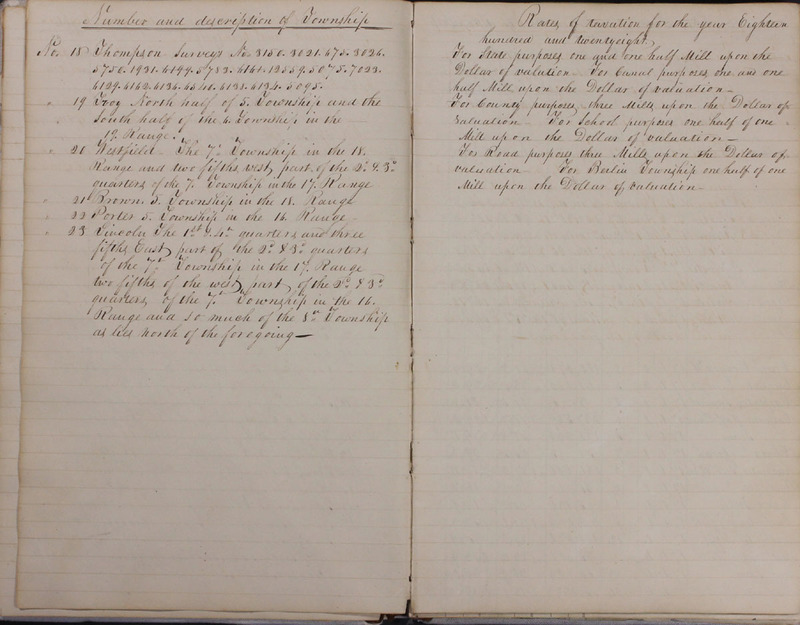 Number and description of Township
No. 18 Thompson Surveys No. 3150. 3021. 675. 3026.
5750. 1931. 6199. 5783. 6161. 12559. 5075. 7023.
6129. 6162. 6136. 6131. 6134. 5095.
" 19 Troy North half of 5. Township and the
South half of the 6. Township in the
19. Range.
" 20 Westfield The 7th Township in the 18.
Range and two fifths west part of the 2d & 3d
quarters of the 7. Township in the 17. Range
" 21 Brown 5. Township in the 18. Range
" 22 Porter 5. Township in the 16. Range
" 23 Lincoln The 1st & 4th quarters and three
fifths East part of the 2d & 3d quarters
of the 7th Township in the 17. Range
two fifths of the west part of the 2d & 3d
quarters of the 7th Township in the 16.
Range and so much of the 8th Township
as lies north of the forgoing—
Rates of taxation for the year Eighteen
hundred and twentyeight.
For State purposes one and one half Mill upon the
Dollar of valuation— For Canal purposes one and one
half Mill upon the Dollar of valuation—
For County purposes three Mills upon the Dollar of
valuation— For School purposes one half of one
Mill upon the Dollar of valuation—
For Road purposes three Mills upon the Dollar of
valuation— For Berlin Township one half of one
Mill upon the Dollar of valuation—